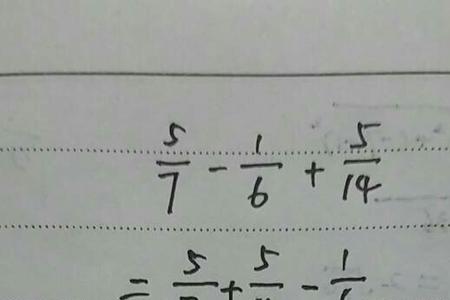 5/7 - 1/6 + 5/14
= 5/ + 5/ - 1/